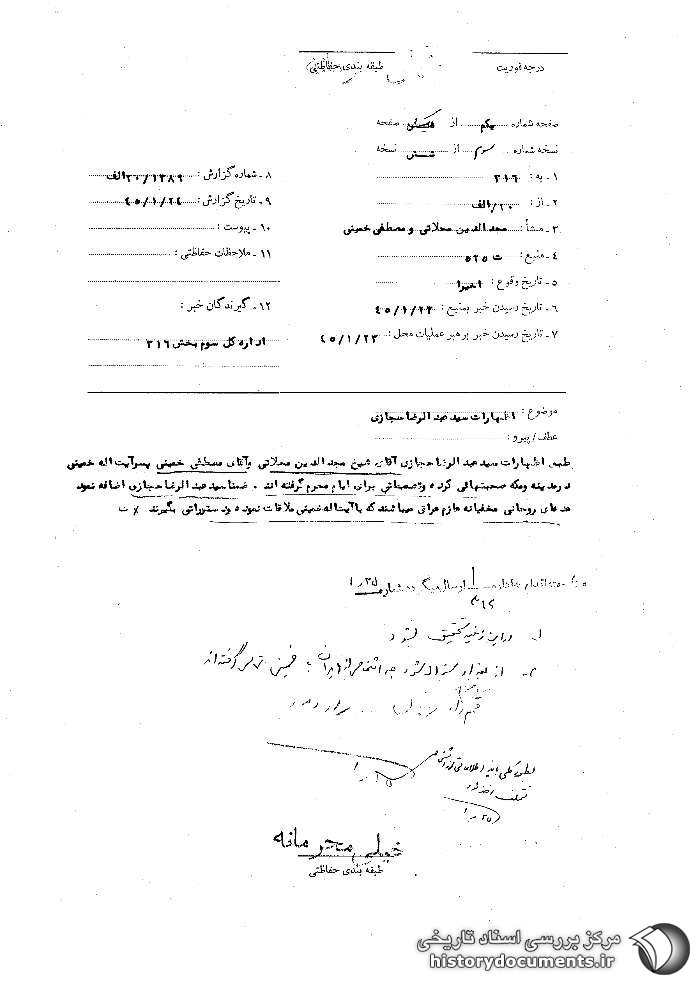 درجه فوریت
طبقه بندی (حفاظتی)
صفحه شماره یکم از یکم صفحه
نسخه شماره سوم از شش نسخه
۱ - به : ۳۱۶
۲ - از : ۲۰/الف
۳ - منشأ : مجدالدین محلاتی و مصطفی خمینی
۴ - منبع : ت ۵۲۵
۵ - تاریخ وقوع : اخیرا
۶ - تاریخ رسیدن خبر بمنبع : ۴۵/۱/۲۳
۷ - تاریخ رسیدن خبر برهبر عملیات محل : ۴۵/۱/۲۳
۸ - شماره گزارش : ۲۰/۱۳۸۹الف
۹ - تاریخ گزارش : ۴۵/۱/۲۴
۱۰ - پیوست :
۱۱ - ملاحظات حفاظتی :
۱۲ - گیرندگان خبر :
اداره کل سوم بخش ۳۱۶
موضوع : اظهارات سید عبدالرضا حجازی
عطف / پیرو :
طبق اظهارات سید عبدالرضا حجازی آقای شیخ مجدالدین محلاتی وآقای مصطفی خمینی پسرآیت اله خمینی
درمدینه ومکه صحبتهائی کرده وتصمیماتی برای ایام محرم گرفته اند . ضمنا سید عبدالرضا حجازی اضافه نمود
عده‌ای روحانی مخفیانه عازم عراق میباشند که باآیت‌اله خمینی ملاقات نموده ودستوراتی بگیرند
۱- در این زمینه تحقیق شود
۲- از بغداد سئوال شود چه اشخاصی از ایران با خمینی تماس گرفته‌اند
خیلی محرمانه
طبقه بندی حفاظتی
مرکز بررسی اسناد تاریخی
historydocuments.ir